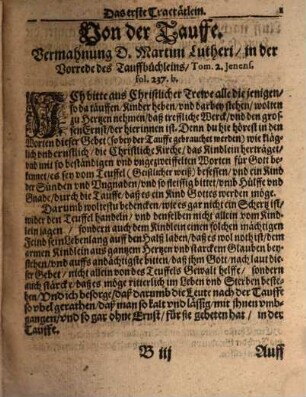 Das erste Tractätlein.
Von der Tauffe.
Vermahnung D. Martini Lutheri / in der
Vorrede des Tauffbüchleins / Tom. 2. Jenens.
fol. 237. b.
ICh bitte aus Christlicher Trewe alle die jenigen /
so da täuffen / Kinder heben / und darbey stehen / wolten
zu Hertzen nehmen / daß trefflliche Werck / und den gros-
sen Ernst / der hierinnen ist. Denn du hie hörest in den
Worten dieser Gebet / (so bey der Tauffe gebrauchet werden) wie kläg-
lich und ernstlich / die Christliche Kirche / das Kindlein herträget /
und mit so beständigen und ungezweiffelten Worten für Gott be-
kennet / es sey vom Teuffel / (Geistlicher weiß) besessen / und ein Kind
der Sünden und Ungnaden / und so fleissig bittet / umb Hülffe und
Gnade / durch die Tauffe / daß es ein Kind Gottes werden möge.
Darumb wollestu bedencken / wie es gar nicht ein Schertz ist /
wider den Teuffel handeln / und denselben nicht allein vom Kind-
lein jagen / sondern auch dem Kindlein einen solchen mächtigen
Feind sein Lebenlang auff den Halß laden / daß es wol noth ist / dem
armen Kindlein aus gantzem Hertzen und starcken Glauben bey-
stehen / und auffs andächtigste bitten / daß ihm Gott / nach laut die-
ser Gebet / nicht allein von des Teuffels Gewalt helffe / sondern
auch stärcke / daß es möge ritterlich im Leben und Sterben beste-
hen / Und ich besorge / daß darumb die Leute nach der Tauffe
so übel gerathen / daß man so kalt und lässig mit ihnen umb-
gangen / und so gar ohne Ernst / für sie gebeten hat / in der
Tauffe.
B iij
Auff